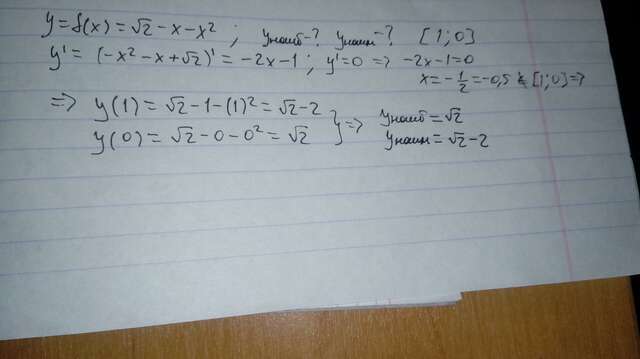 y=f(x)=√2-x-x²; yнаиб-? yнаим-? [1;0]
y'=(-x²-x+√2)'=-2x-1; y'=0 => -2x-1=0
x=-1/2=-0,5 ∉ [1;0] =>
=> y(1)=√2-1-(1)²=√2-2
y(0)=√2-0-0²=√2 } =>
yнаиб=√2
yнаим=√2-2